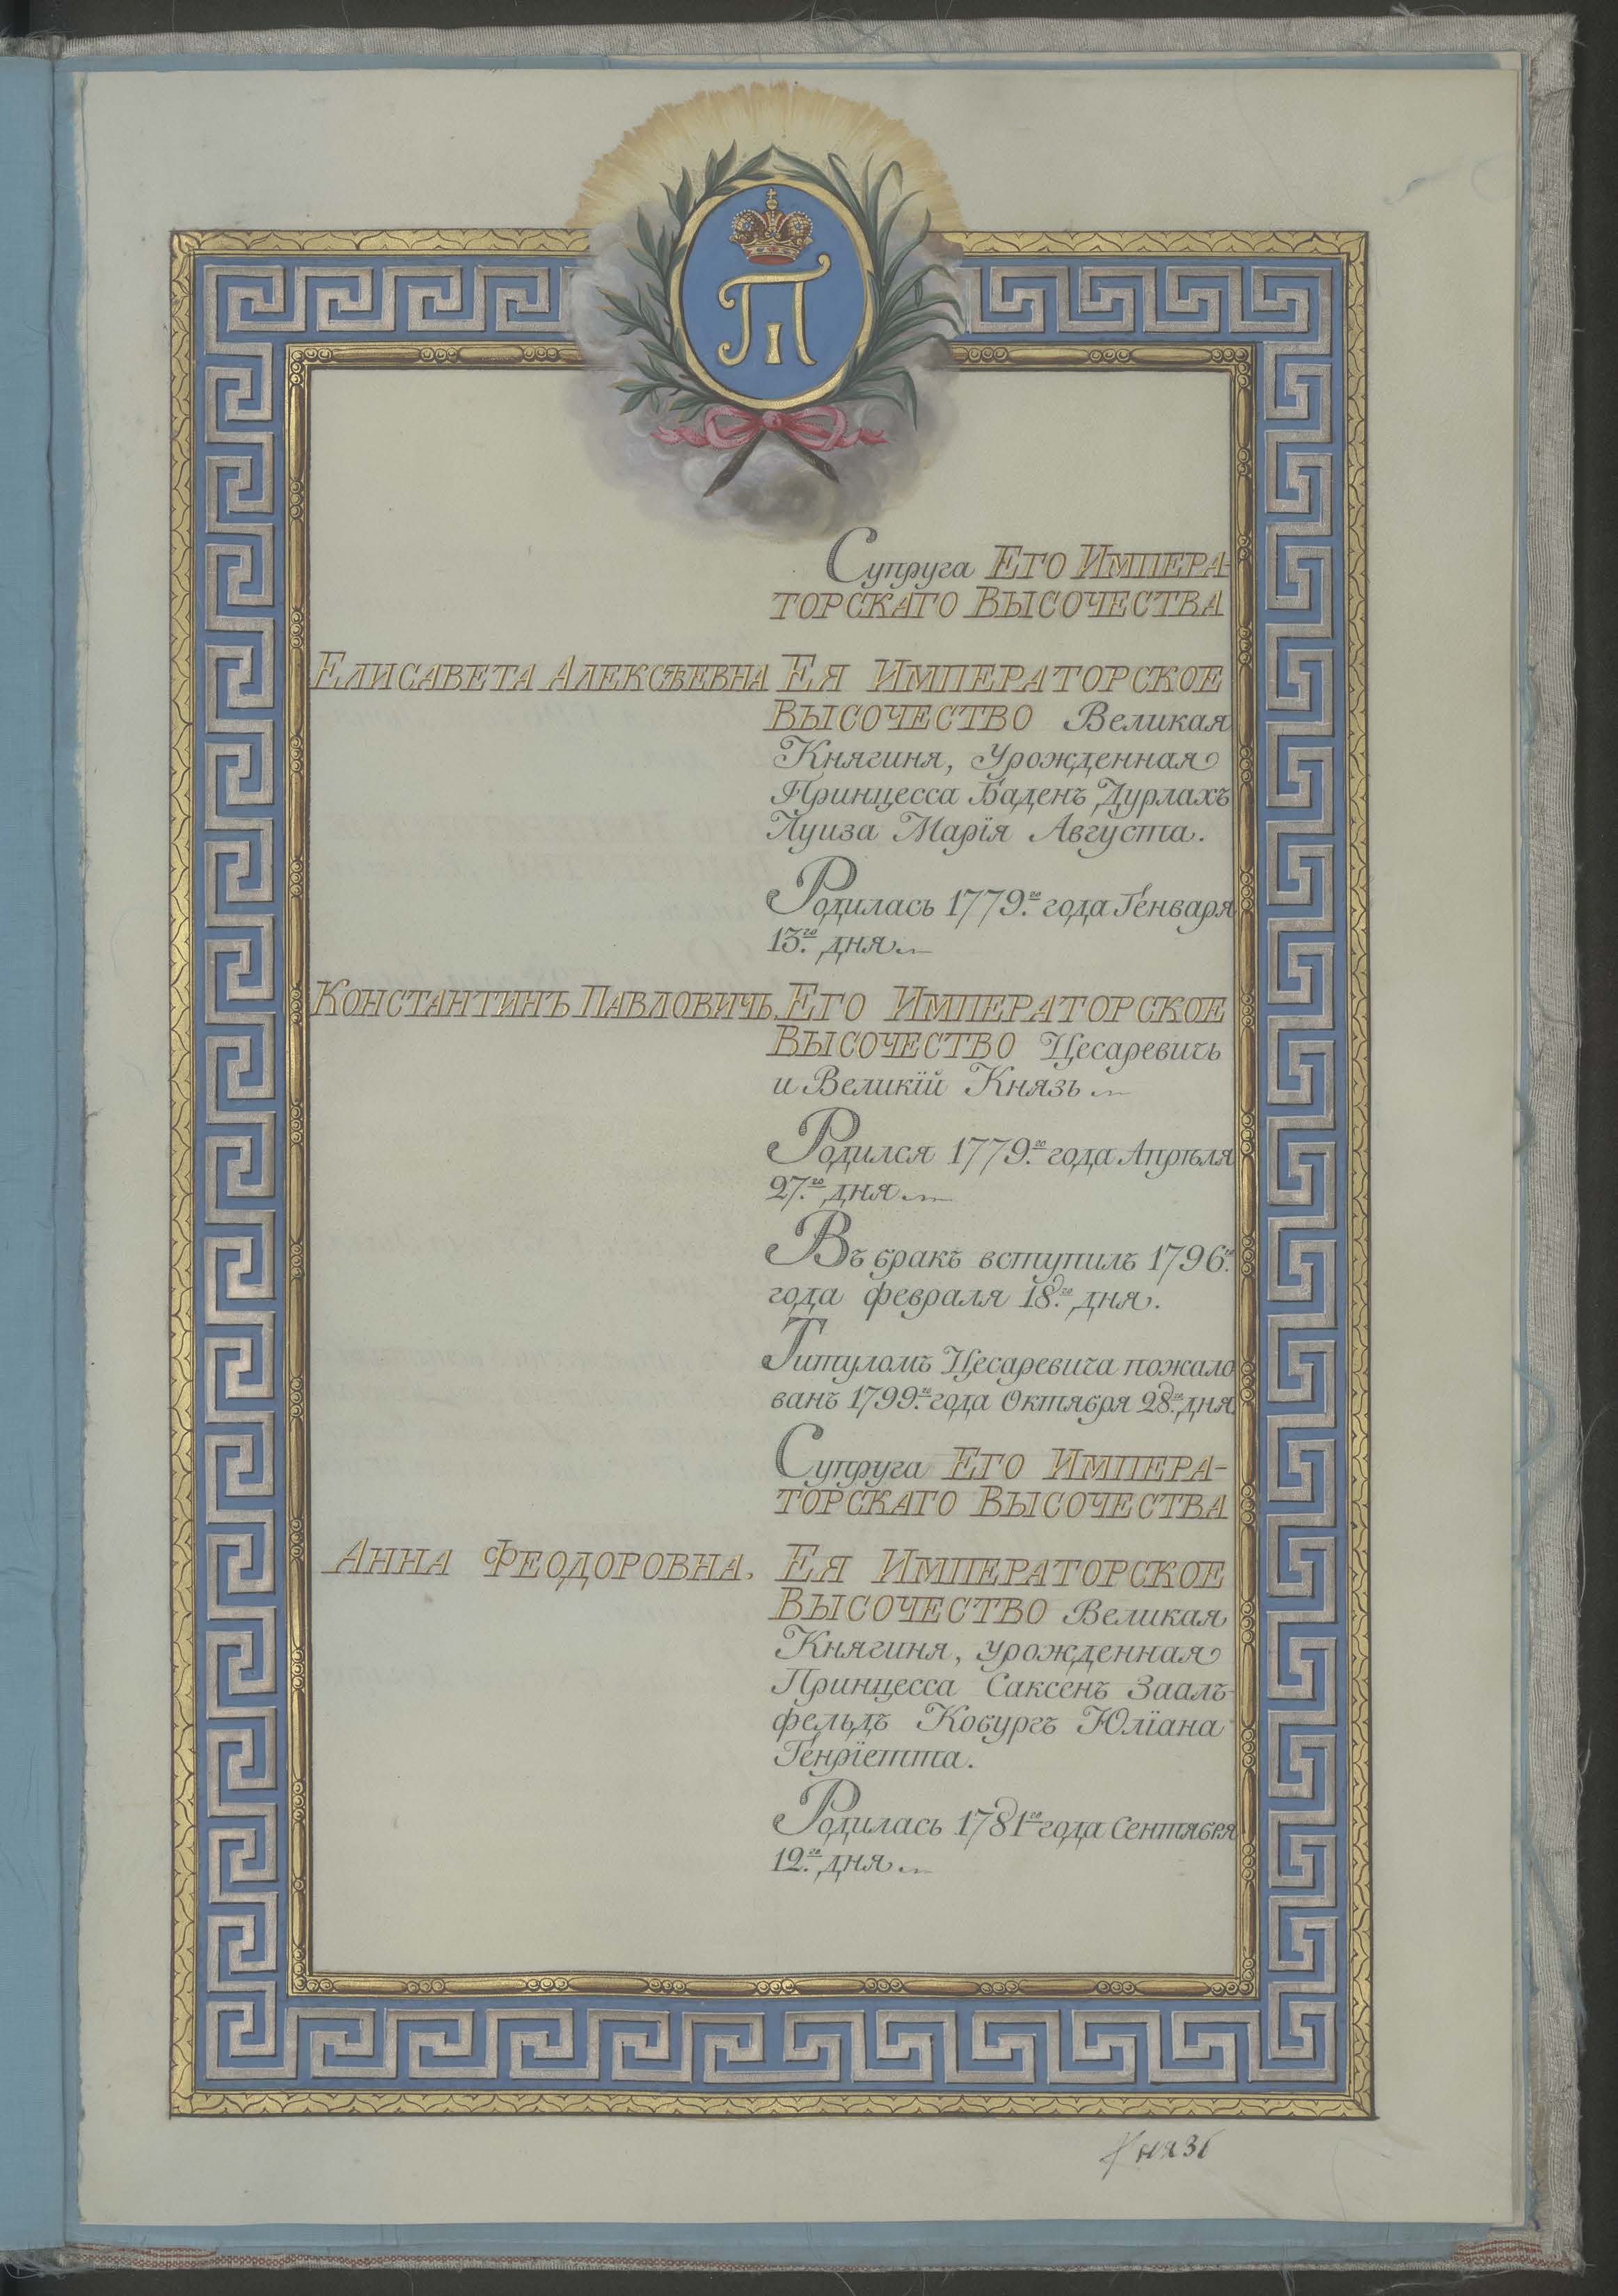 П I
Супруга ЕГО ИМПЕРА-
ТОРСКАГО ВЫСОЧЕСТВА
ЕЛИСАВЕТА АЛЕКСѢЕВНА ЕЯ ИМПЕРАТОРСКОЕ
ВЫСОЧЕСТВО Великая
Княгиня, Урожденная
Принцесса Баденъ Дурлахъ
Луиза Марїя Августа.
Родилась 1779.го года Генваря
13.го дня
КОНСТАНТИНЪ ПАВЛОВИЧЬ, ЕГО ИМПЕРАТОРСКОЕ
ВЫСОЧЕСТВО Цесаревичь
и Великїй Князь
Родился 1779.го года Апрѣля
27.го дня
Въ бракъ вступилъ 1796.го
года февраля 18.го дня.
Титуломъ Цесаревича пожало
ванъ 1799.го года Октября 28.го дня
Супруга ЕГО ИМПЕРА-
ТОРСКАГО ВЫСОЧЕСТВА
АННА ФЕОДОРОВНА, ЕЯ ИМПЕРАТОРСКОЕ
ВЫСОЧЕСТВО Великая
Княгиня, урожденная
Принцесса Саксенъ Заалъ-
фельдъ Кобургъ Юлїана
Генрїетта.
Родилась 1781го года Сентября
12.го дня
Князь